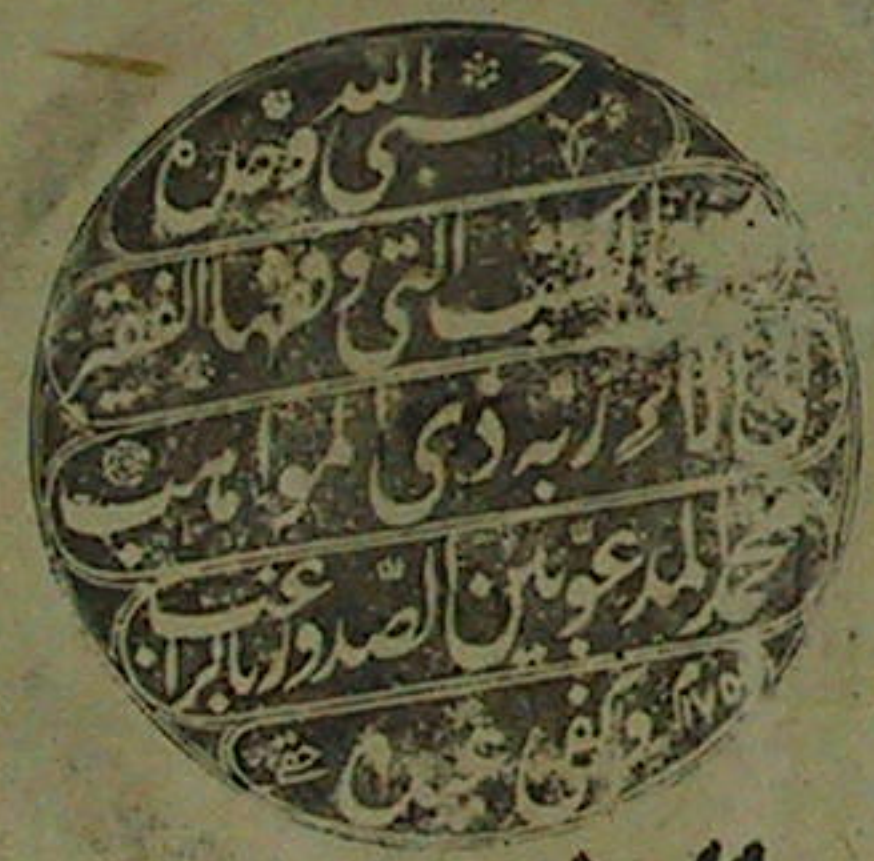 حسبي الله وحده
الكتب التي وقفها الفقير
الى آلاء ربه ذي المواهب
محمد المدعو بين الصدور بالراغب
وكفى عبده